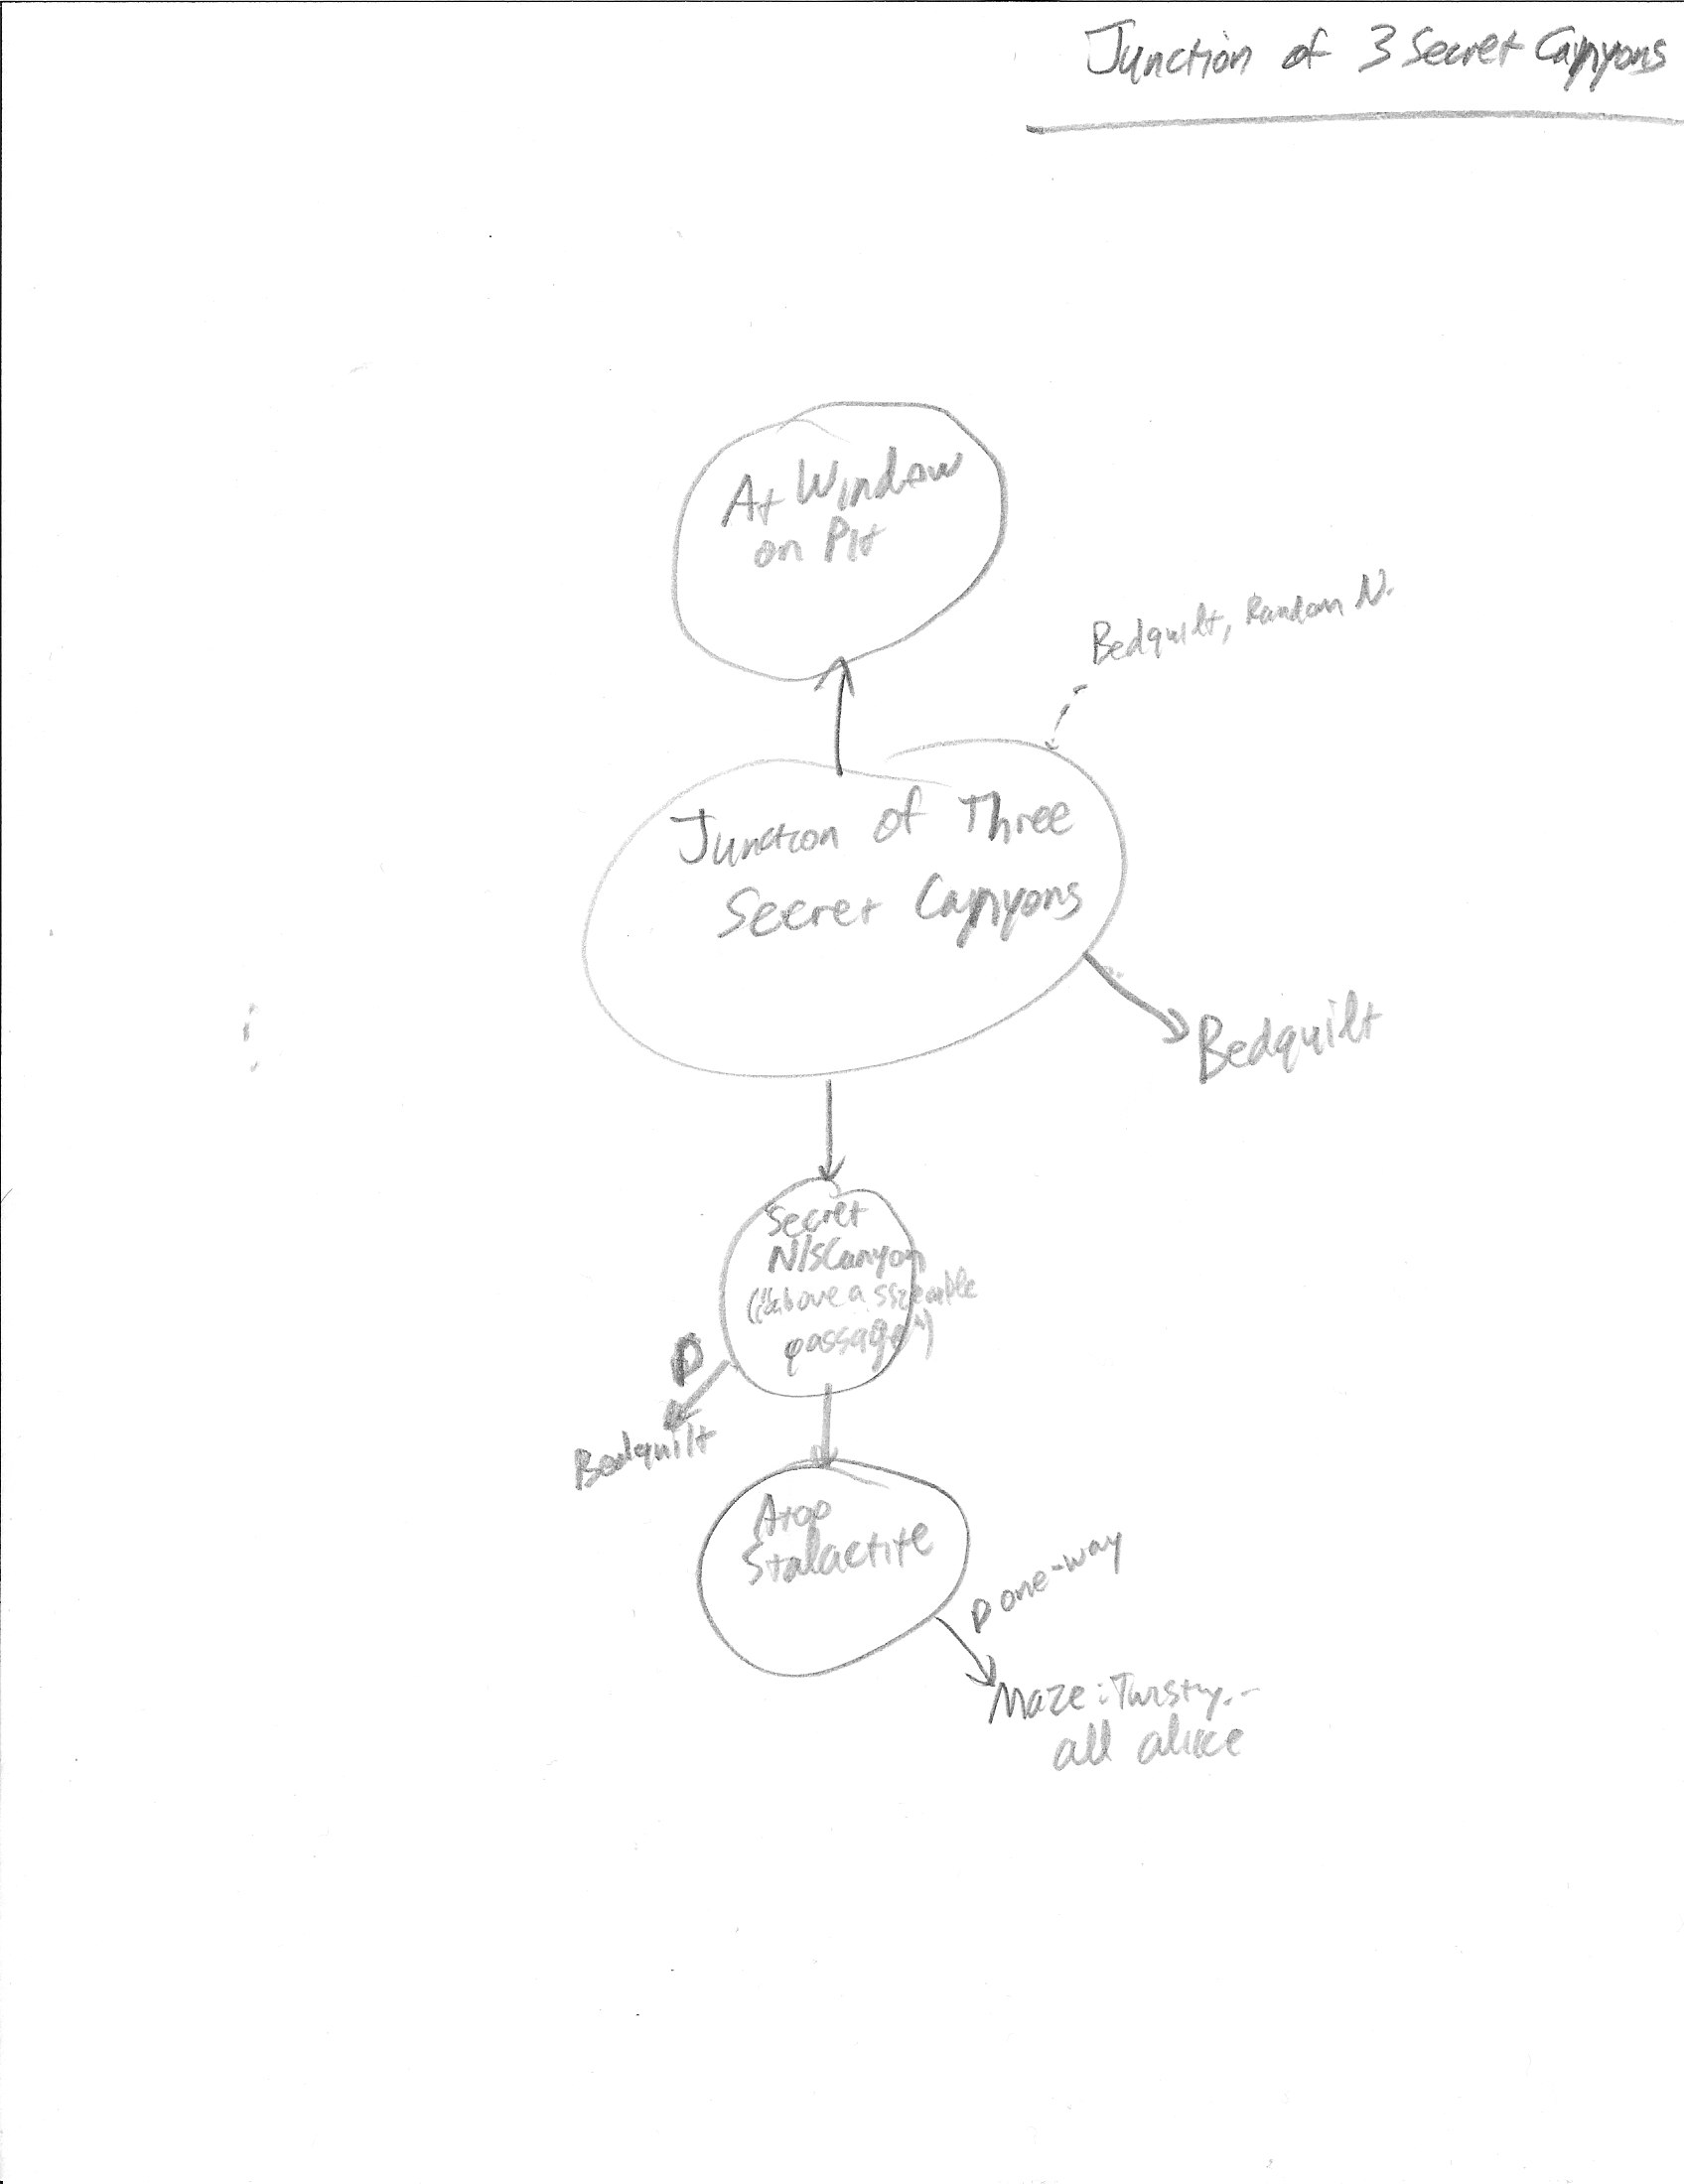 Junction of 3 Secret Canyons
At Window
on Pit
Bedquilt, Random N.
Junction of Three
Secret Canyons
Bedquilt
Secret
N/S Canyon
("above a sizeable
passage")
D
Bedquilt
Atop
Stalactite
D one-way
Maze: Twisty..
all alike